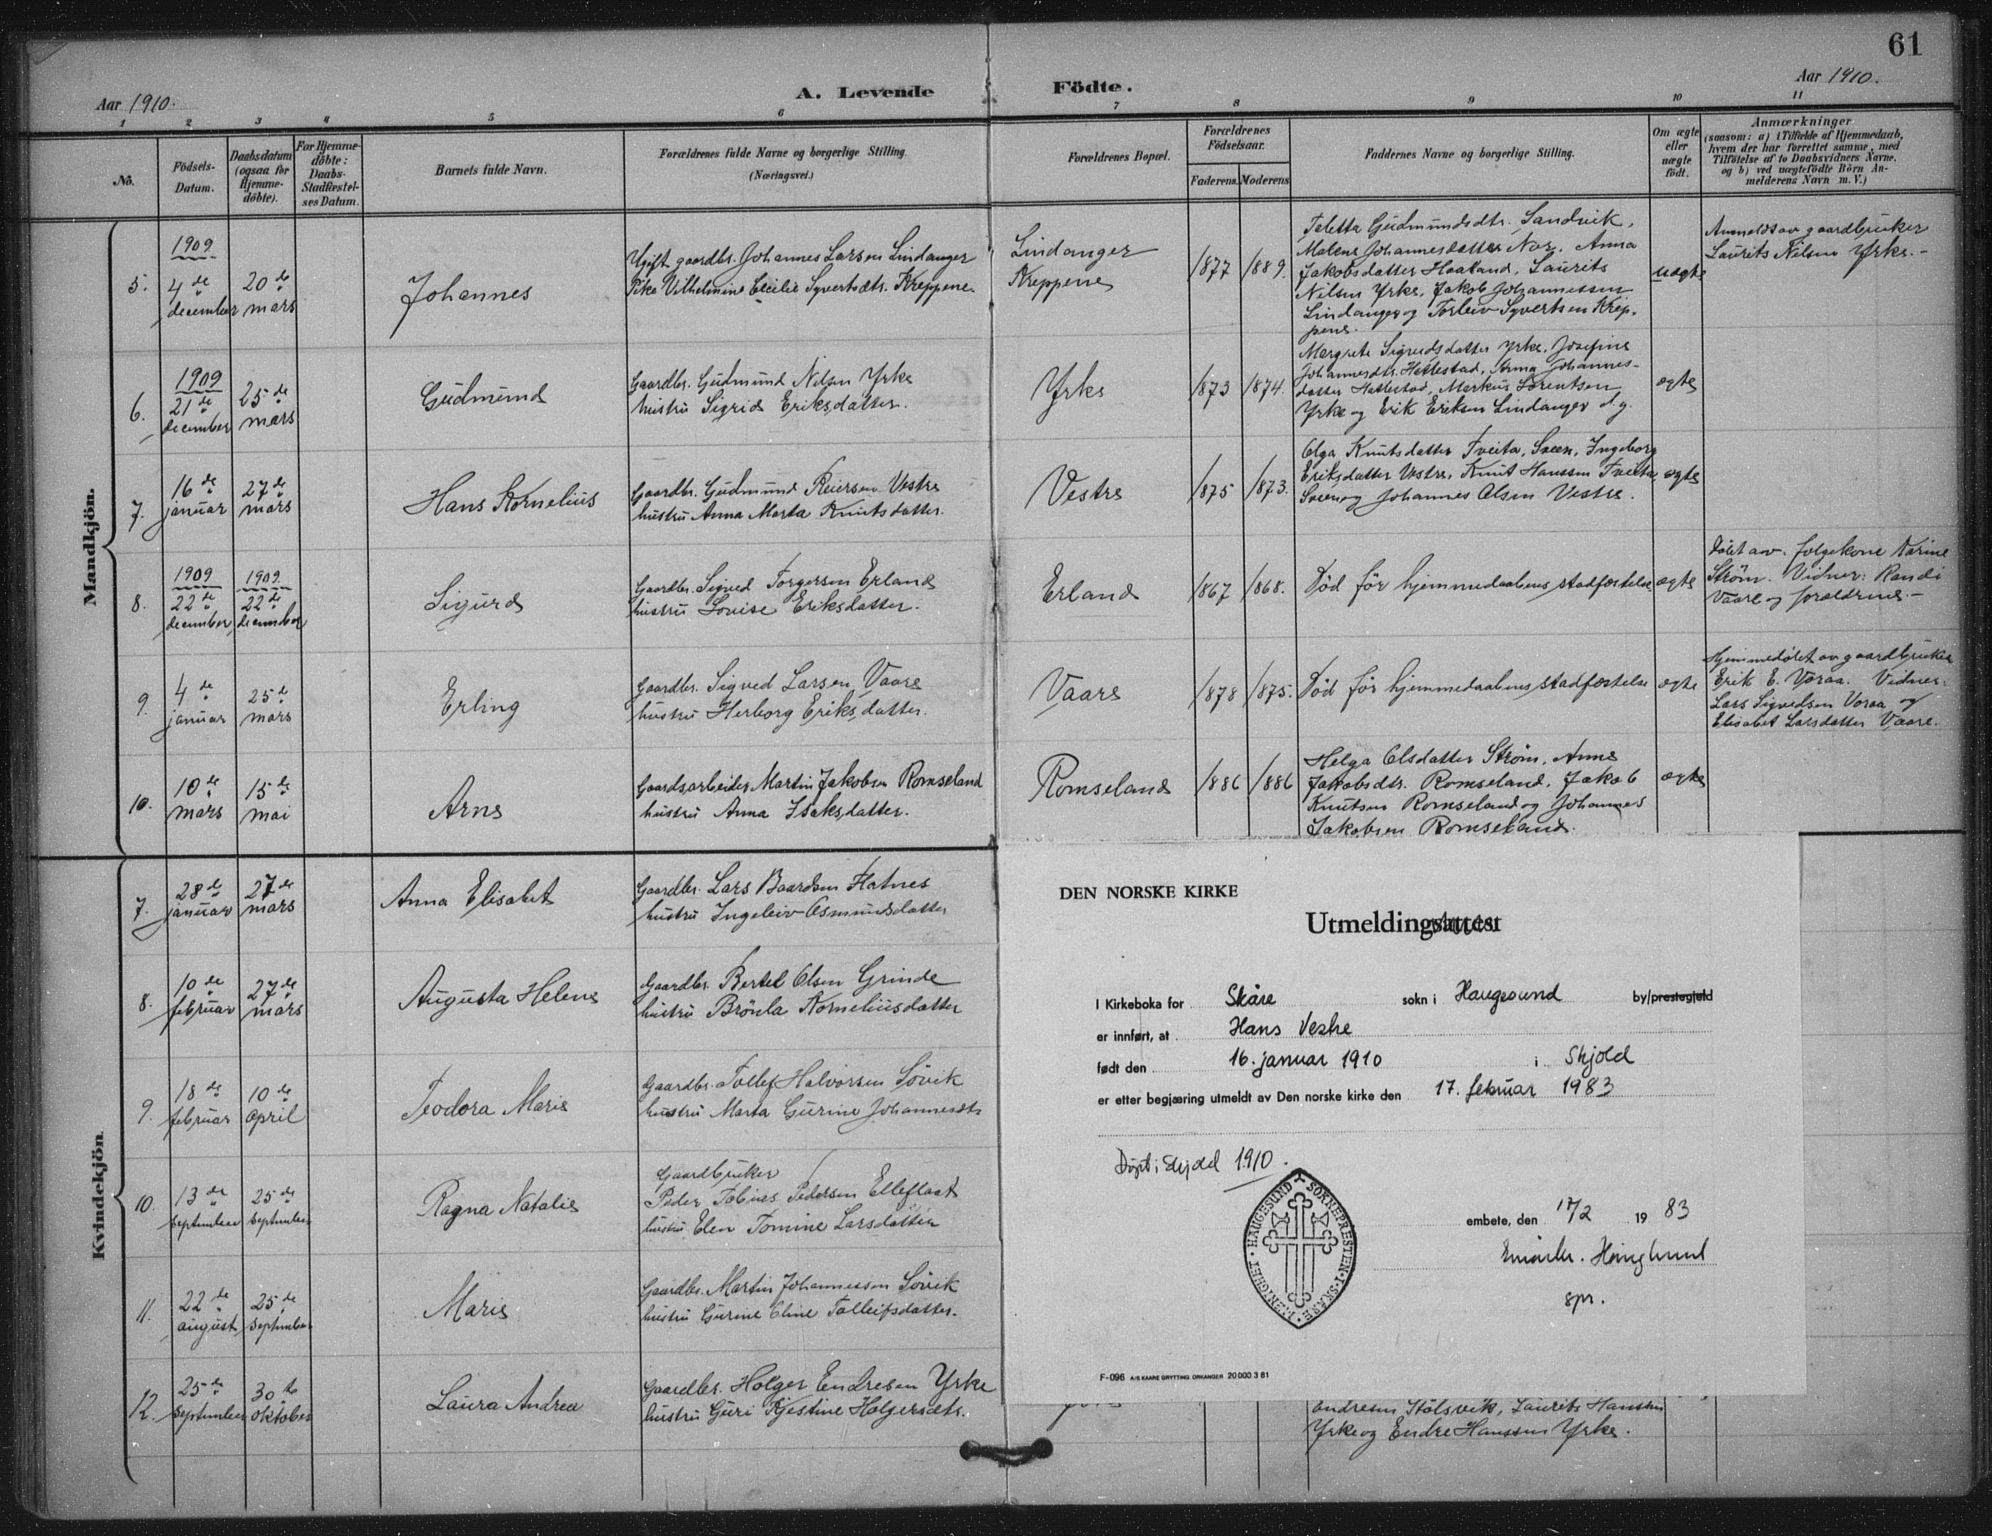 61
Aar 1910.
A. Levende Födte.
Aar 1910.
1 2 3 4 5 6 7 8 9 10 11
No.
Födsels-
Datum.
Daabsdatum
(ogsaa for
Hjemme-
döbte).
For Hjemme-
döbte:
Daabs-
Stadfæstel-
ses Datum.
Barnets fulde Navn.
Forældrenes fulde Navne og borgerlige Stilling.
(Næringsvei.)
Forældrenes Bopæl.
Forældrenes
Födselsaar.
Faderens. Moderens.
Faddernes Navne og borgerlige Stilling.
Om ægte
eller
uægte
födt.
Anmærkninger
(saasom: a) i Tilfælde af Hjemmedaab,
hvem der har forrettet samme, med
Tilföielse af to Daabsvidners Navne,
og b) ved uægtefödte Börn An-
melderens Navn m. V.)
Mandkjön.
5.
1909
4de
december
20de
mars
Johannes
Ugift gaardbr. Johannes Larsen Lindanger
Pike Vilhelmine Cecilie Syvertsdtr. Kreppene.
Lindanger
Kreppene
1877 1889.
Taletta Gudmundsdtr. Sandvik,
Malene Johannesdatter Nor, Anna
Jakobsdatter Haaland, Laurits
Nilsen Yrke, Jakob Johannessen
Lindanger og Torleiv Syvertsen Krep-
pene.
uægte
Anmeldt av gaardbruker
Laurits Nilsen Yrke.-
6.
1909
21de
december
25de
mars
Gudmund
Gaardbr. Gudmund Nilsen Yrke
hustru Sigrid Eriksdatter.
Yrke
1873 1874.
Margrete Sigurdsdatter Yrke, Josefine
Johannesdtr. Hettestad, Anna Johannes-
datter Hettestad, Markus Sørentsen
Yrke og Erik Eriksen Lindanger d.y.
ægte
7.
16de
januar
27de
mars
Hans Kornelius
Gaardbr. Gudmund Reiersen Vestre
hustru Anna Marta Knutsdatter.
Vestre
1875 1873.
Olga Knutsdatter Tveita, Sveen, Ingeborg
Eriksdatter Vestre, Knut Hanssen Tveita
Sveen og Johannes Olsen Vestre.
ægte
8.
1909
22de
december
1909
22de
december
Sigurd
Gaardbr. Sigved Torgersen Erland
hustru Lovise Eriksdatter.
Erland
1867 1868.
Död før hjemmedaabens stadfæstelse
ægte
Døbt av jordmor Karine
Strøm. Vidner: Randi
Vaare og forældrene.-
9.
4de
januar
25de
mars
Erling
Gaardbr. Sigved Larsen Vaare
hustru Herborg Eriksdatter.
Vaare
1878 1875.
Död før hjemmedaabens stadfæstelse
ægte
Hjemmedøbt av gaardbruker
Erik E. Voraa. Vidner:
Lars Sigvedsen Voraa og
Elisabet Larsdatter Vaare.
10.
10de
mars
15de
mai
Arne
Gaardsarbeider Martin Jakobsen Romseland
hustru Anna Isaksdatter.
Romseland
1886 1886
Helga Olsdatter Strøm, Anne
Jakobsdtr. Romseland, Jakob
Knutsen Romseland og Johannes
Jakobsen Romseland.
ægte
Kvindekjön.
7.
28de
januar
27de
mars
Anna Elisabet
Gaardbr. Lars Baardsen Hatnes
hustru Ingeleiv Osmundsdatter
8.
10de
februar
27de
mars
Augusta Helene
Gaardbr. Bertel Olsen Grinde
hustru Brönla Korneliusdatter
9.
18de
februar
10de
April
Teodora Marie
Gaardbr. Tollef Halvorsen Søvik
hustru Marta Gurine Johannesdtr
10.
13de
september
25de
september
Ragna Natalie
Gaardbruker
Peder Tobias Pedersen Elleflaat
hustru Elen Tomine Larsdatter
11.
22de
august
25de
september
Marie
Gaardbr. Martin Johannessen Søvik
hustru Gurine Oline Tolleifsdatter.
12.
25de
september
30te
oktober
Laura Andrea
Gaardbr. Holger Endresen Yrke
hustru Guri Kjestine Holgersdtr.
Endresen Stölsvik, Laurits Hanssen
Yrke og Endre Hanssen Yrke.
DEN NORSKE KIRKE
Utmeldingsattest
I Kirkeboka for Skåre sokn i Haugesund by/prestegjeld
er innført, at Hans Vestre
født den 16. januar 1910 i Skjold
er etter begjæring utmeldt av Den norske kirke den 17. februar 1983
Døpt i Skjold 1910.
MENIGHET · HAUGESUND · SOKNEPRESTEN I SKÅRE
embete, den 17/2 19 83
spr.
F-096 A/S KAARE GRYTTING ORKANGER 20 000 3 81